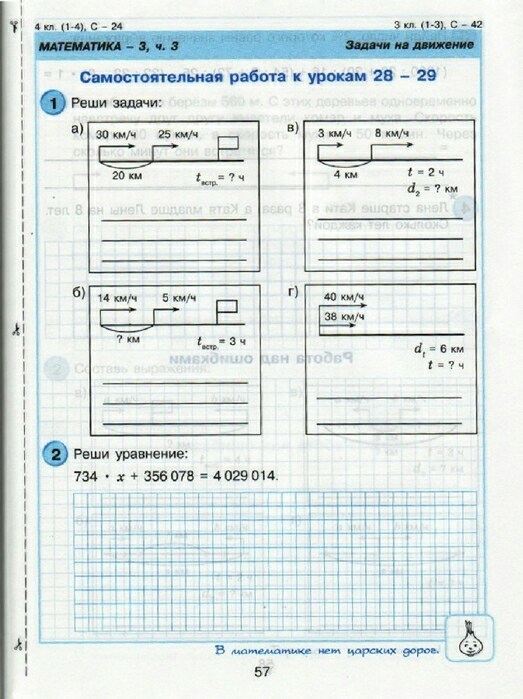 4 кл. (1-4), С – 24
3 кл. (1-3), С – 42
МАТЕМАТИКА – 3, ч. 3
Задачи на движение
Самостоятельная работа к урокам 28 – 29
1 Реши задачи:
а)
30 км/ч 25 км/ч
20 км
tвстр. = ? ч
в)
3 км/ч 8 км/ч
4 км
t = 2 ч
d2 = ? км
б)
14 км/ч 5 км/ч
? км
tвстр. = 3 ч
г)
40 км/ч
38 км/ч
dt = 6 км
t = ? ч
2 Реши уравнение:
734 · x + 356 078 = 4 029 014.
В математике нет царских дорог.
57